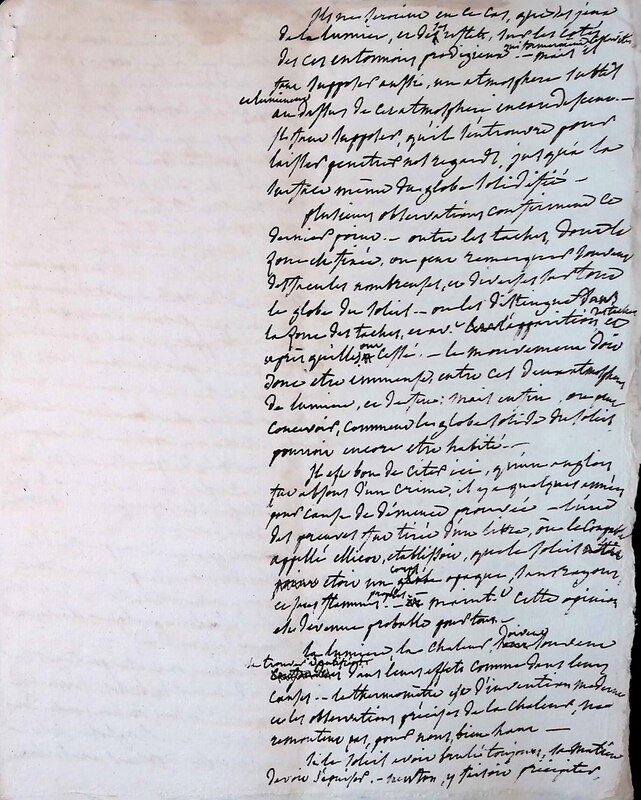 Ils ne seroient en ce cas, que des jeux
de la lumiere, et des reflets, sur les cotés
de ces entonnoirs prodigieux — mais il
faut supposer aussi, un atmosphere subtil
et lumineux
au dessus de cet atmosphere encore
Il faut supposer, qu'il s'entrouvre pour
laisser penetrer nos regards, jusqu'à la
surface même du globe solidifié —
plusieurs observations confirment ce
dernier point. — outre les taches, dont la
zone est fixée, on peut remarquer souvent
des facules nombreuses, et diverses sur tout
le globe du soleil — on les distingue dans
la zone des taches, et av.t l'apparition des taches et
après qu'elles ont cessé. — le mouvement doit
donc etre immense, entre ces deux atmosphere
de lumiere, et de feu: mais enfin, on peut
concevoir, comment le globe solide du soleil
pourroit encore etre habité —
Il est bon de citer ici, qu'un anglois
fut absous d'un crime, il y a quelques années
pour cause de démence prouvée — l'une
des preuves fut tirée d'un livre, où le coupable
appellé elliot, etablissoit, que le soleil
etoit un corps opaque, sans rayons,
et sans flammes propres — maint.t cette opinion
est devenue probable pour tous —
la lumiere, la chaleur doivent souvent
se trouver dans leurs effets comme dans leurs
causes. — le thermomètre est d'invention moderne
et les observations précises de la chaleur, ne
remontent pas, pour nous, bien haut —
Si le soleil avoit brulé toujours, sa matiere
devoit s'épuiser. — newton, y faisoit précipiter